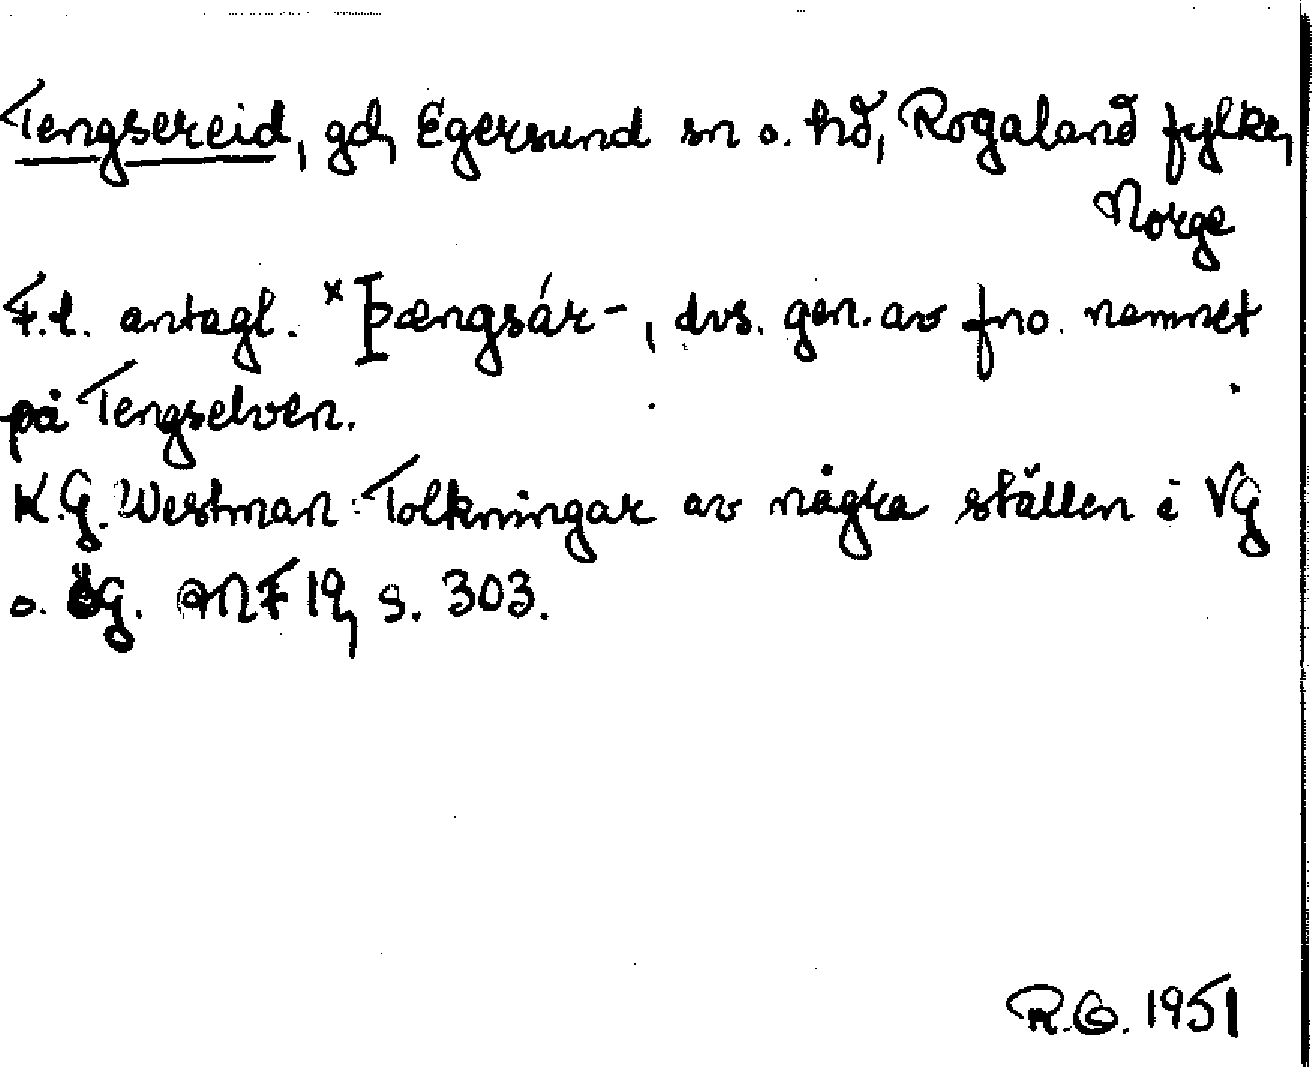 Tengsereid, gd, Egersund sn o. hd, Rogaland fylke,
Norge
F.l. antagl. *Þængsár-, dvs. gen. av fno. namnet
på Tengselven.
K.G. Westman: Tolkningar av några ställen i VG
o. ÖG. ANF 19, s. 303.
R.G. 1951